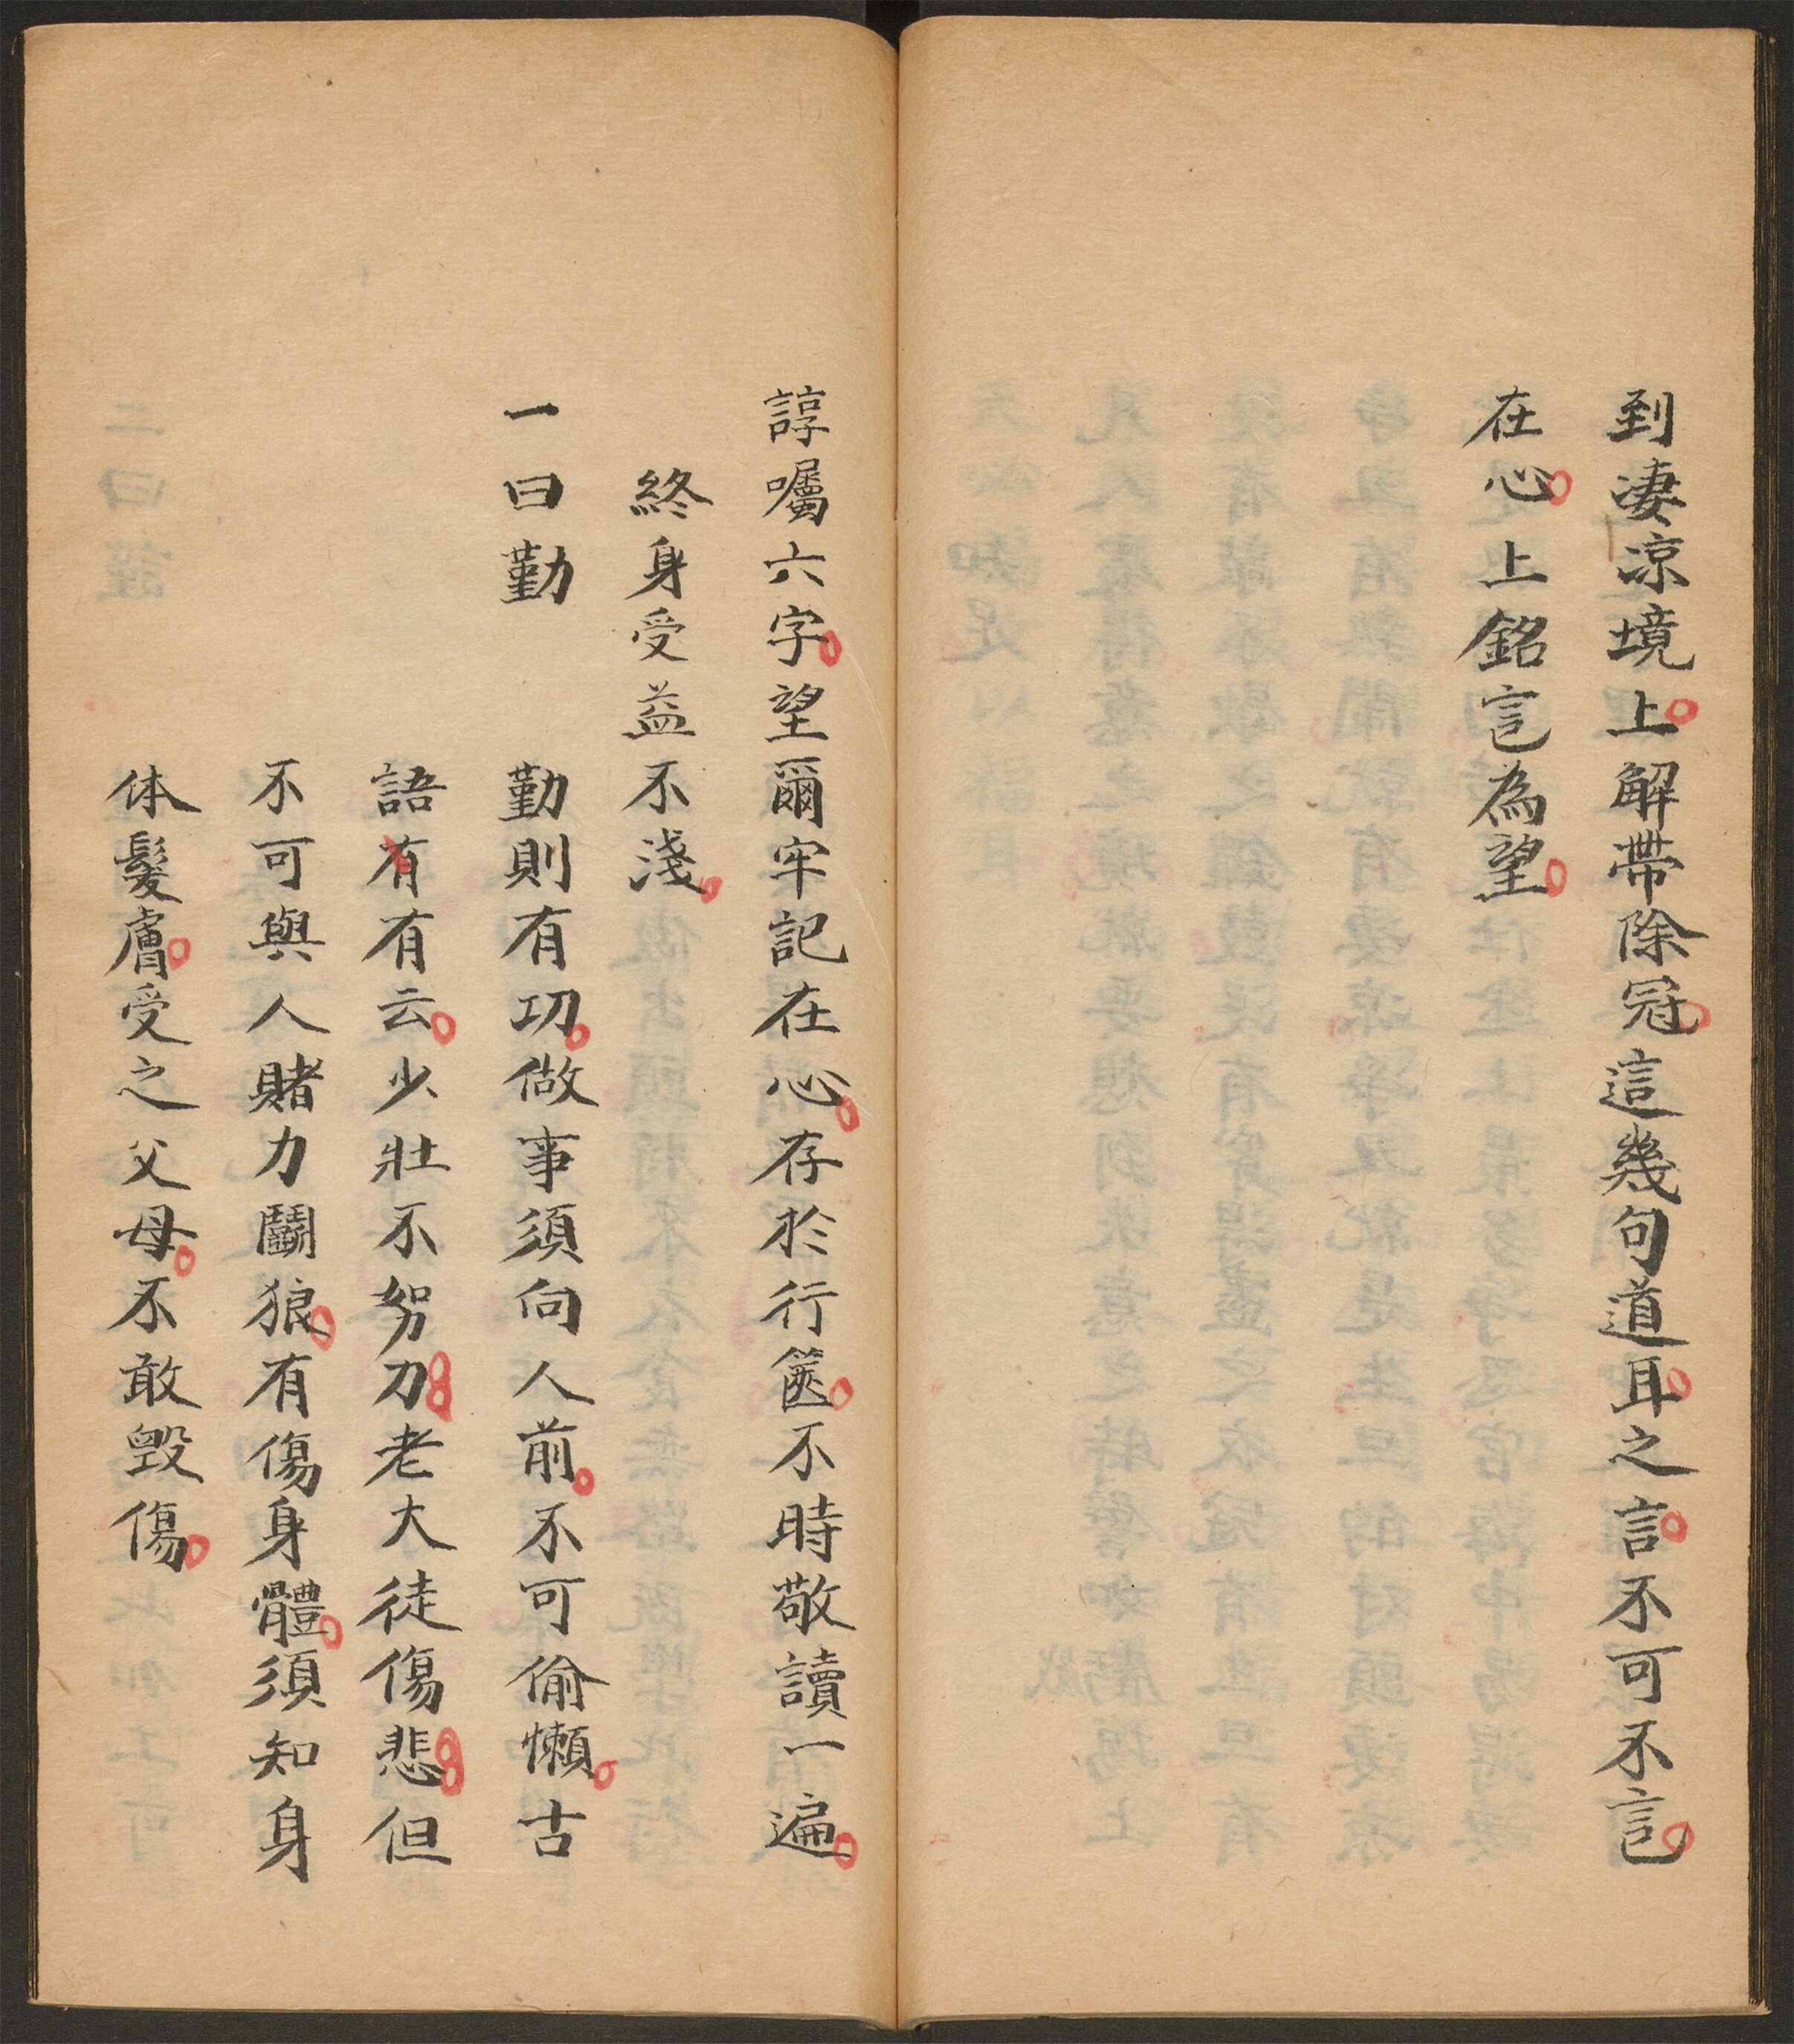 到淒凉境上解帶除冠這幾句道耳之言不可不言
在心上銘言為望
諄囑六字望爾牢記在心存於行篋不時敬讀一遍
終身受益不淺
一曰勤
勤則有功做事須向人前不可偷懶古
語有有云少壯不努刀老大徒傷悲但
不可與人賭力鬭狼有傷身體須知身
体髮膚受之父母不敢毀傷